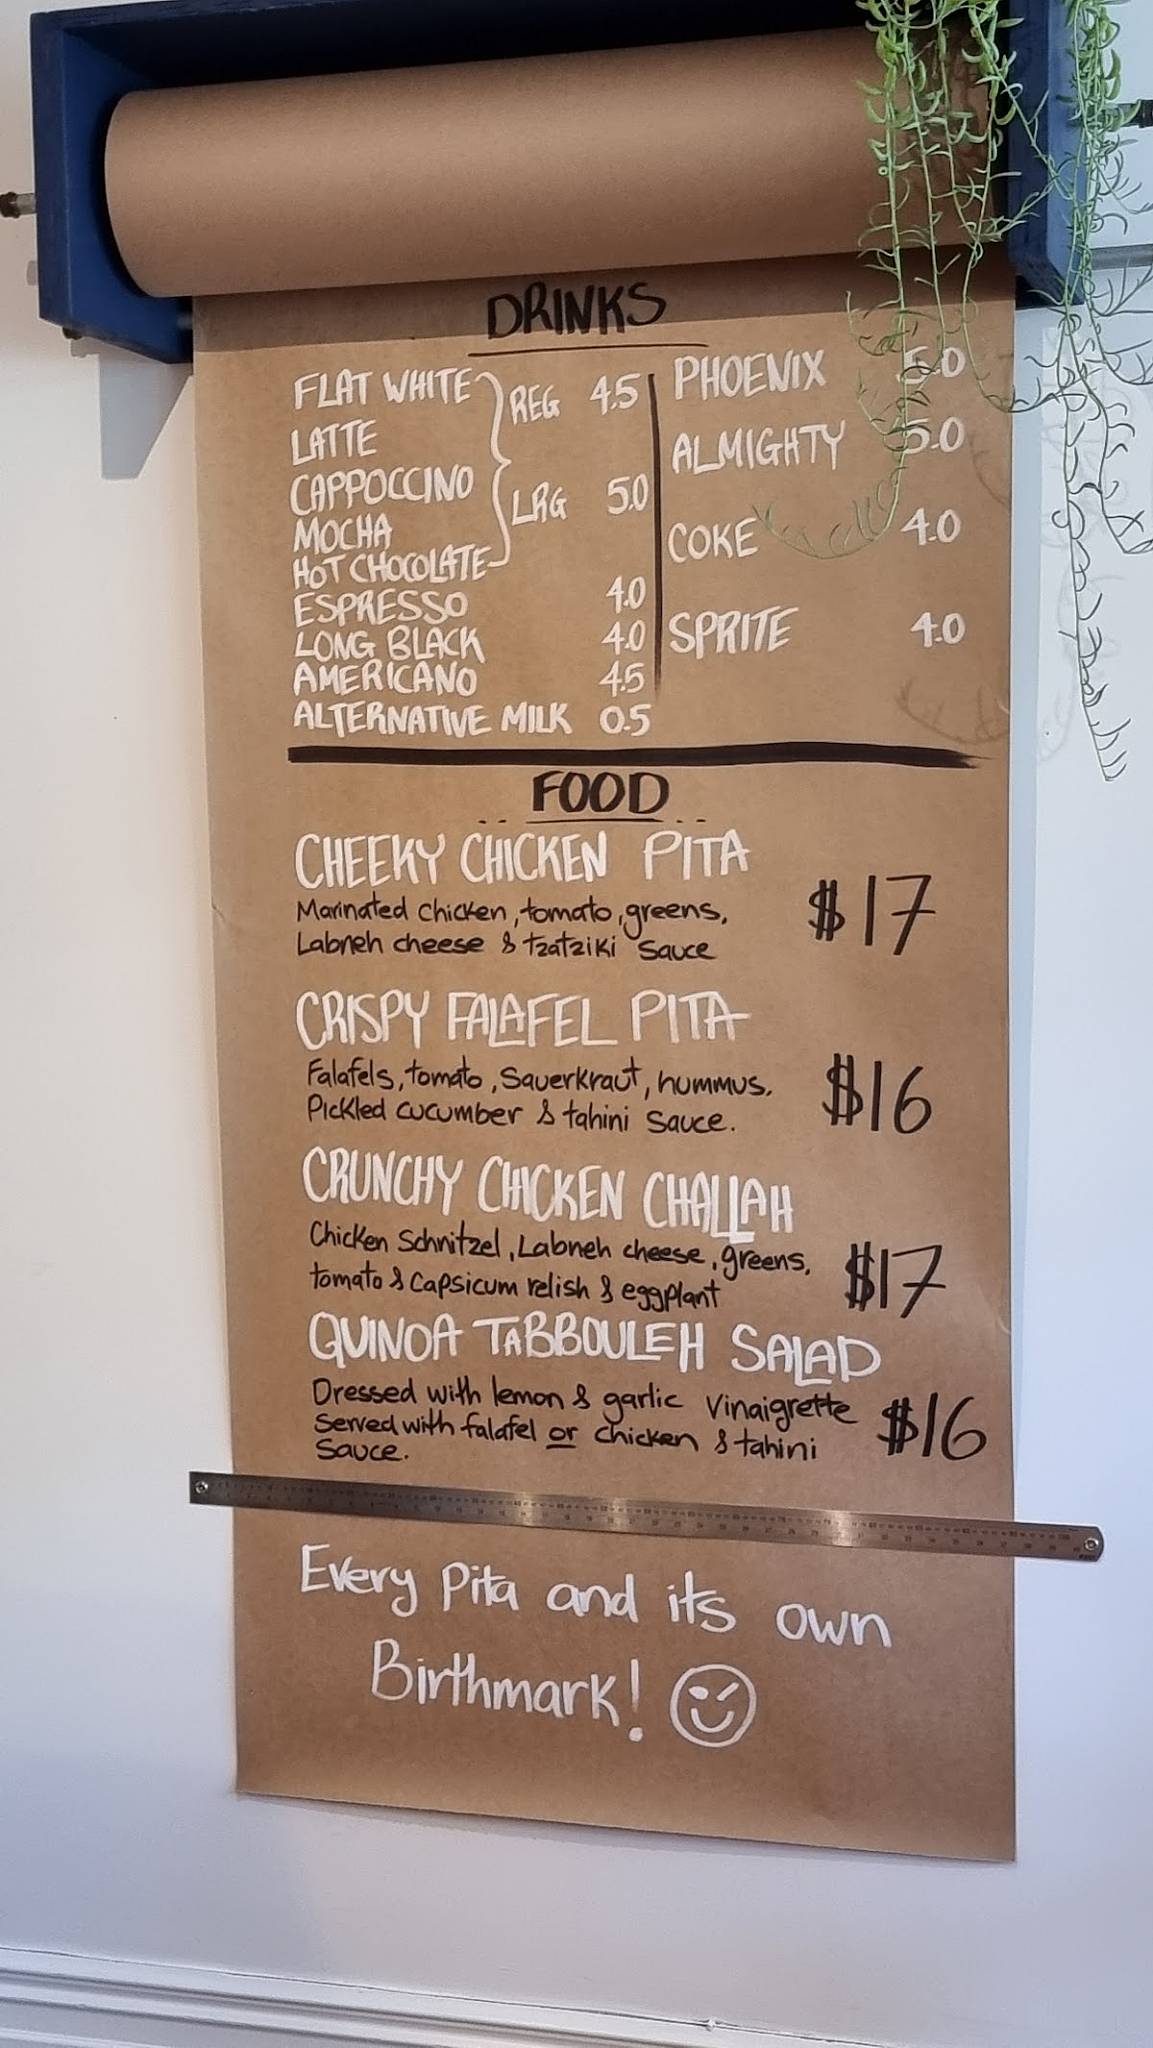 DRINKS
FLAT WHITE
LATTE
CAPPOCCINO
MOCHA
HOT CHOCOLATE
REG 4.5
LRG 5.0
ESPRESSO 4.0
LONG BLACK 4.0
AMERICANO 4.5
ALTERNATIVE MILK 0.5
PHOENIX 5.0
ALMIGHTY 5.0
COKE 4.0
SPRITE 4.0
FOOD
CHEEKY CHICKEN PITA
Marinated chicken, tomato, greens,
Labneh cheese & tzatziki sauce
$17
CRISPY FALAFEL PITA
Falafels, tomato, Sauerkraut, hummus.
Pickled cucumber & tahini sauce.
$16
CRUNCHY CHICKEN CHALLAH
Chicken Schnitzel, Labneh cheese, greens,
tomato & capsicum relish & eggplant
$17
QUINOA TABBOULEH SALAD
Dressed with lemon & garlic vinaigrette
Served with falafel or chicken & tahini
sauce.
$16
Every Pita and its own
Birthmark!